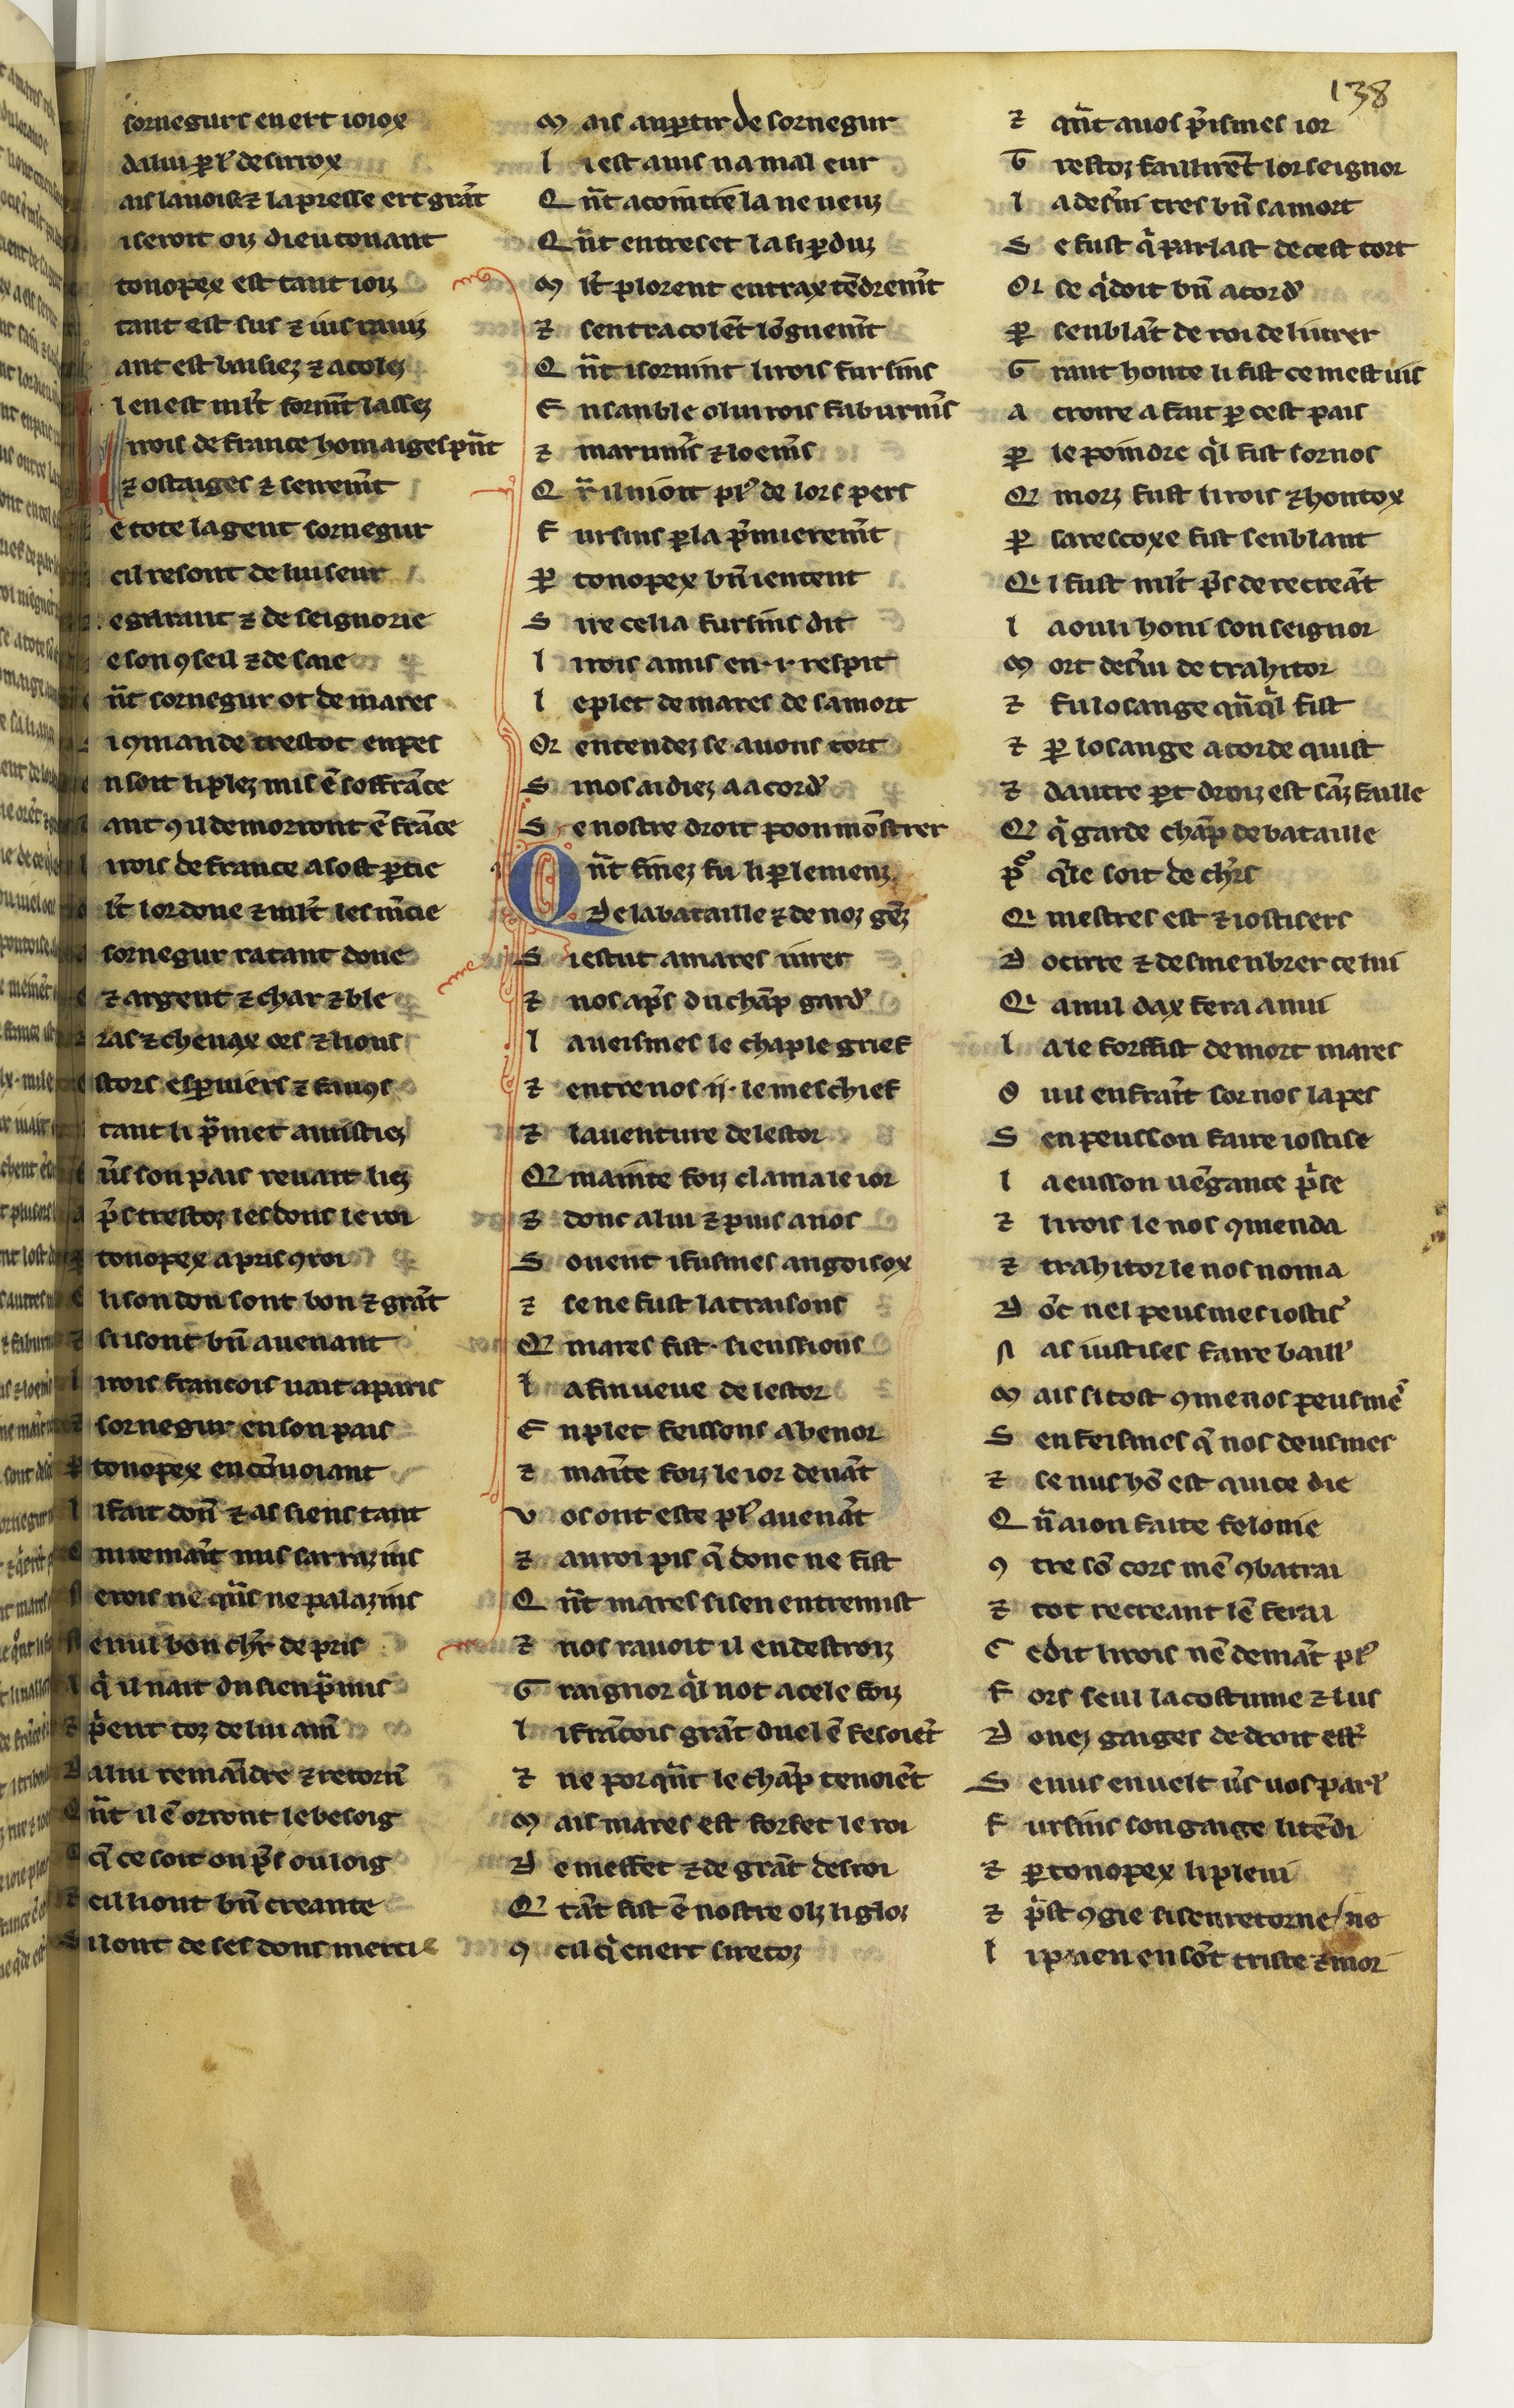 138
sornegurs en ert ioiox
a lui ꝑl᷒ desirrox
ais la noise ⁊ la presse ert grãt
i seroit oiz dieu tonant
tonopex est tant ioiz
tant est sus ⁊ ius rauiz
ant est baisiez ⁊ acolez
l en est ml̃t formt̃ lassez
irois de france homaiges pñt
⁊ ostaiges ⁊ seiremt̃
e tote la gent sornegur
cil resont de lui seur
e garant ⁊ de seignorie
e son ꝯseil ⁊ de saie
ñt sornegur ot de mares
i ꝯmande trestot en pes
n soit li plez mis ẽ soffrãce
ant ꝯ il demorront ẽ frãce
irois de france a sost ꝑtie
l̃t lor done ⁊ ml̃t les m̃cie
sornegur ratant done
⁊ argent ⁊ char ⁊ ble
ras ⁊ cheuax ors ⁊ lions
stors esꝑuiers ⁊ fauꝯs
tant li ꝓmet amistiez
ũs son pais reuait liez
p̃s trestoz les dons le roi
tonopex a pris ꝯroi
li son don sont bon ⁊ grãt
si sont bñ auenant
l irois francois uait a paris
⁊ sornegur en son pais
ꝑ tonopex en cõuoiant
l i fait doñ ⁊ as siens tant
ni remaĩt nus sarrazins
e rois ne qũs ne palazins
e nul bon chl̃r de pris
q̃ il nait du sien ꝓmis
⁊ p̃ent toz de lui am̃
A lui remaĩdre ⁊ retorñ
Q ñt il ẽ orront le besoig
q̃ ce soit ou p̃s ou loig
⁊ cil li ont bñ creante
S il ont de ses dons merci
M ais au ꝑtir de sornegur
l i est auis na mal eur
Q ñt acointie la ne ueuz
Q ñt entreset la si ꝑduz
M l̃t plorent entrax tẽdremt̃
⁊ sentracolẽt lõguemt̃
Q ñt i soruint li rois fursins
E nsanble o lui rois faburĩs
⁊ marunĩs ⁊ loemĩs
Q r̃ il uioit pl᷒ de lors pers
F ursins ꝑla p̃mieremt̃
ꝑ tonopex bñ i entent
S ire cel ia fursins dit
l i rois a mis en .i. respit
l e plet de mares de sa mort
Or entendez se auons tort
S i nos aidiez a acord᷒
S e nostre droit poon mõstrer
Q ñt finez fu li ꝑlemenz
De la bataille ⁊ de noz gẽz
S i estut a mares iurer
⁊ nos ap̃s du chãp gard᷒
l a ueismes le chaple grief
⁊ entre nos .ii. le meschief
⁊ lauenture de lestor
Qi mainte foiz clama le ior
⁊ donc a lui ⁊ puis a nos
S ouent i fusmes angoisox
⁊ se ne fust la traisons
Qi mares fist . si eussions
l a fin ueue de lestor
E n plet feissons abenor
⁊ maĩte foiz le ior deuãt
V os ont este pl᷒ auenãt
⁊ au roi pis q̃ donc ne fist
Q ñt mares si sen entremist
⁊ nos rauoit il en destroiz
G raignor q̃l not a cele foiz
l i frãcois grãt duel ẽ fesoiẽt
⁊ ne por qñt le chãp tenoiẽt
M ais mares est forfet le roi
D e meffet ⁊ de grãt desroi
Qi tãt fist ẽ nostre olz li gloz
ꝯ cil q̃ en ert sire toz
⁊ qñt a uos p̃ismes ior
G restoz faillirẽt lor seignor
l a deserui tres bñ sa mort
S e fust q̃ parlast de cest tort
Or se q̃doit bñ acord᷒
ꝑ senblãt de roi deliurer
G rant honte li fist ce mest uis
A croire a fait ꝑ cest pais
ꝑ le poindre q̃l fist sor nos
Qi morz fust li rois ⁊ hontox
ꝑ sa rescoxe fist senblant
Qi l fust ml̃t p̃s de recreãt
l a oiui honi son seignor
M ort deserui de trahitor
⁊ fu losange qñq̃l fist
⁊ ꝑ losange acorde quist
⁊ dautre ꝑt droiz est sãz faille
Qi q̃ garde chãp de bataille
P᷒ q̃le soit de chl̃rs
Qi mestres est ⁊ iostisers
D ocirre ⁊ desmenbrer celui
Qi a nul dax fera anui
l a le forfist de mort mares
O u il enfraĩt sor nos la pes
S en peusson faire iostise
l a eusson uẽgance p̃se
⁊ li rois le nos ꝯmenda
⁊ trahitor le nos noma
D õc nel peusmes iostis᷒
N as iustises faire baill᷒
M ais si tost ꝯme nos peusmẽs
S en feismes q̃ nos deusmes
⁊ se nus hõ est qui ce die
Q ñ aion faite felonie
ꝯ tre sõ cors mẽ ꝯbatrai
⁊ tot recreant lẽ ferai
C e dit li rois nẽ demãt pl᷒
F ors seul la costume ⁊ lus
D onez gaiges de droit est᷒
S e nus en uelt ũs uos parl᷒
F ursins son gaige li tẽdi
⁊ ꝑtonopex li pleui
⁊ p̃st ꝯgie si sen retorne no
l i paen en sõt triste ⁊ mor